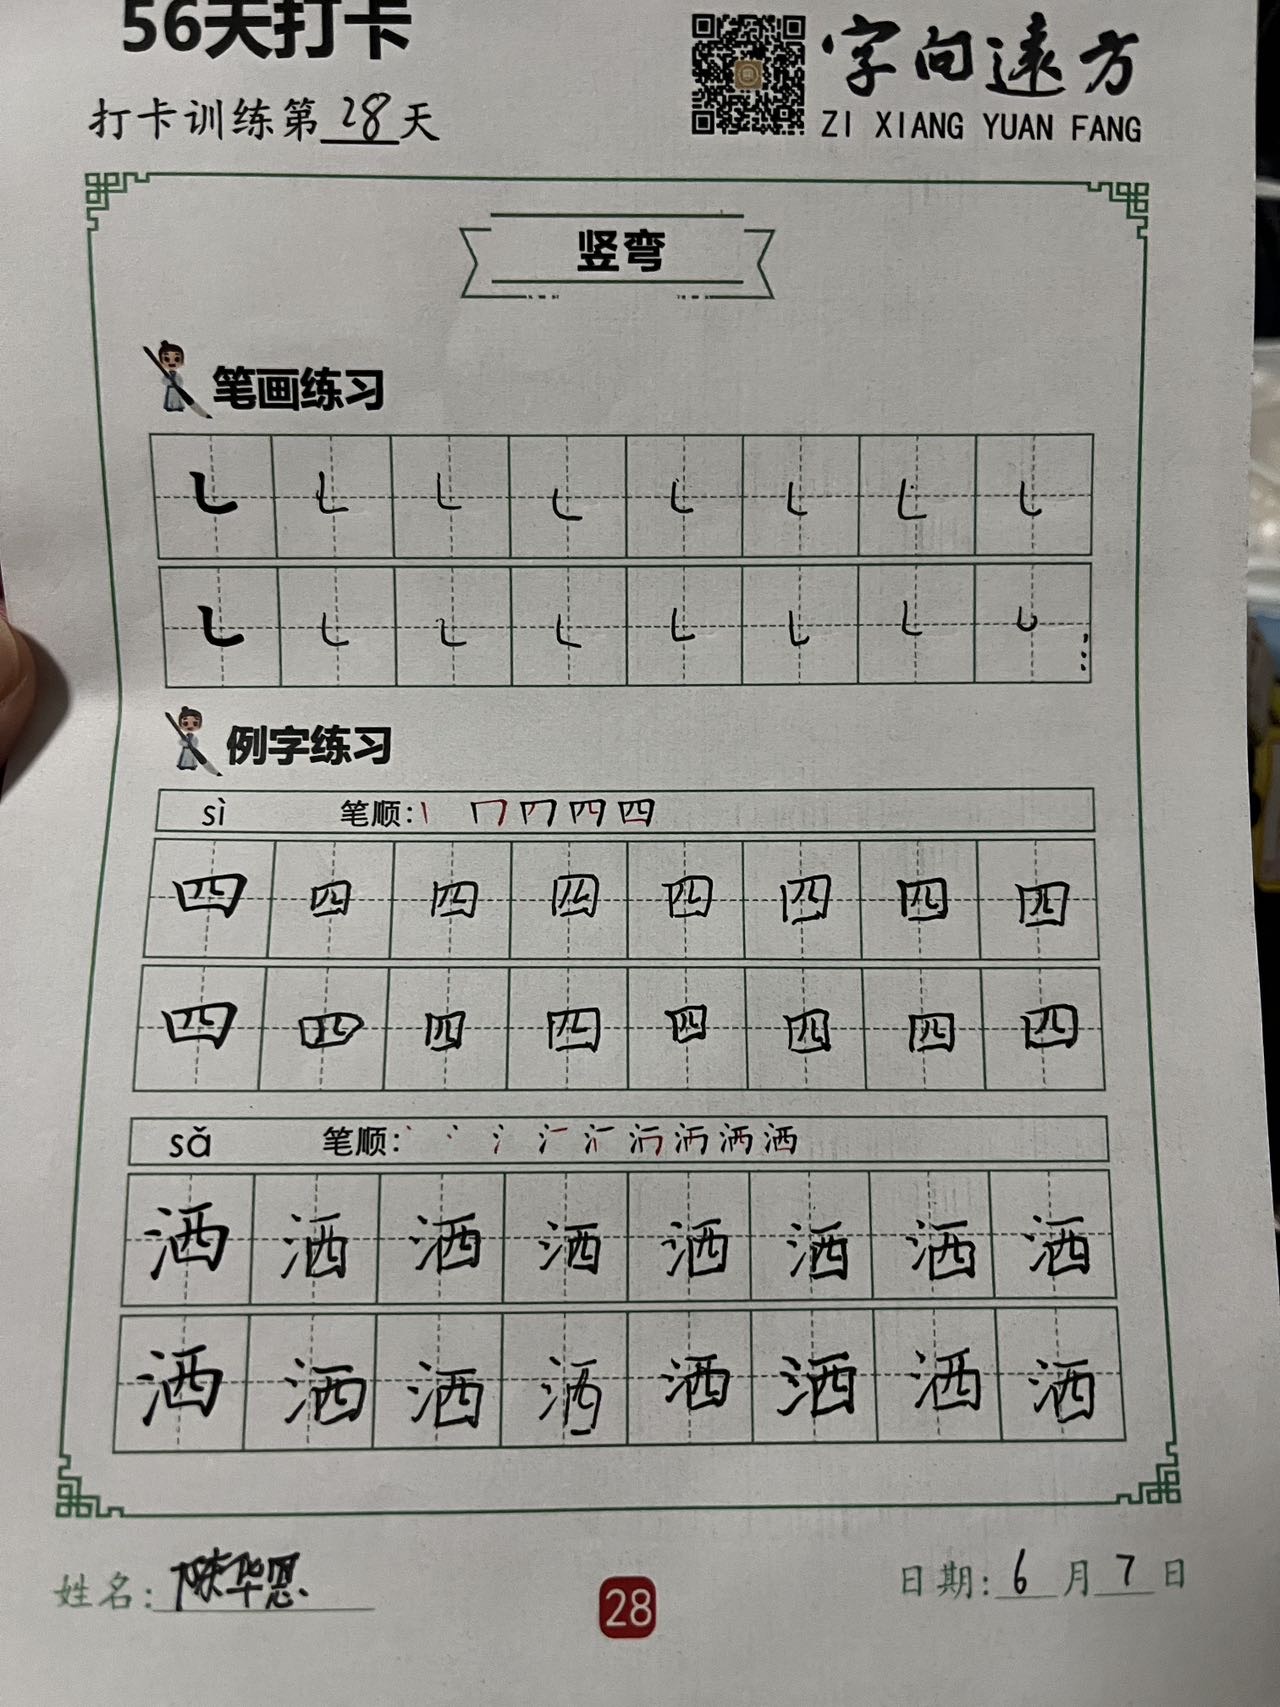 56天打卡
打卡训练第28天
字向遠方
ZI XIANG YUAN FANG
竖弯
笔画练习
㇄ ㇄ ㇄ ㇄ ㇄ ㇄ ㇄ ㇄
㇄ ㇄ ㇄ ㇄ ㇄ ㇄ ㇄ ㇄
例字练习
sì 笔顺: 四
四 四 四 四 四 四 四 四
四 四 四 四 四 四 四 四
sǎ 笔顺: 洒
洒 洒 洒 洒 洒 洒 洒 洒
洒 洒 洒 洒 洒 洒 洒 洒
姓名: 陈华恩
28
日期: 6月7日